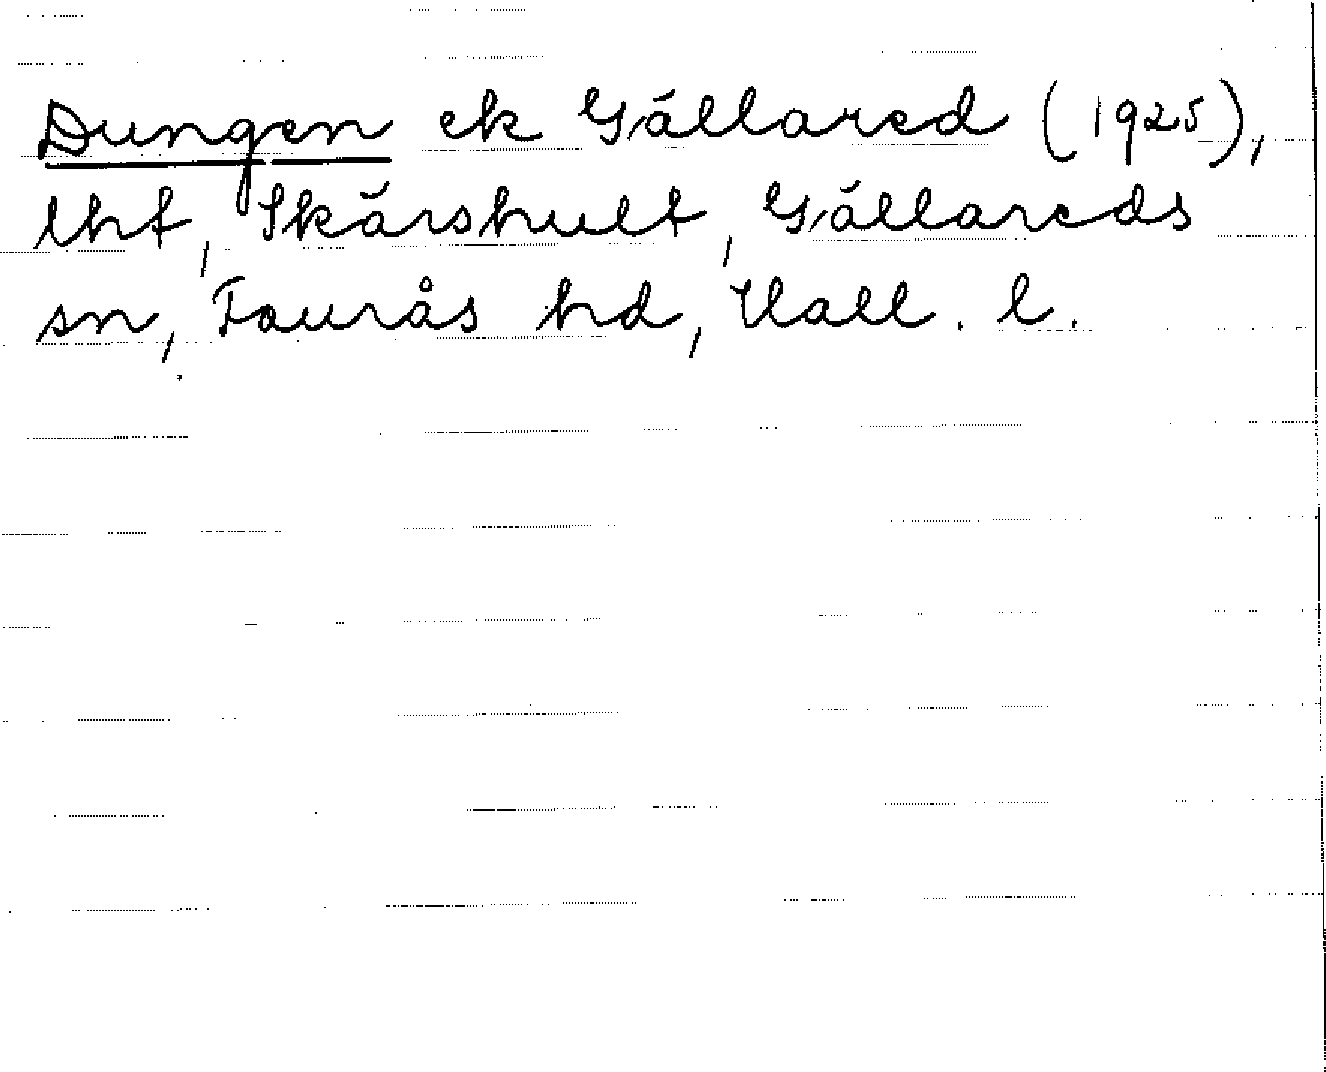 Dungen ek Gällared (1925),
lht, Skärshult, Gällareds
sn, Faurås hd, Hall. l.